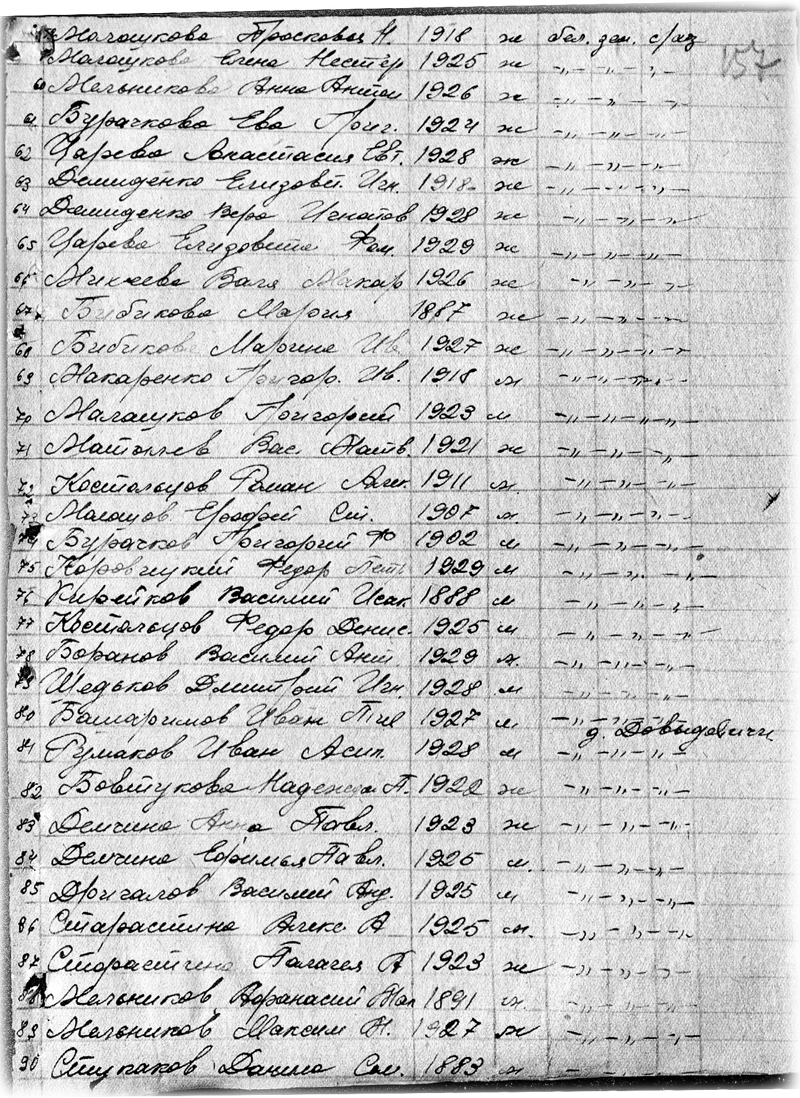 Малашкова Просковья Н 1918 ж бел. зем. с/аз
157
Малашкова Елена Нестер 1925 ж -„-„-„-
60 Мельникова Анна Антон 1926 ж -„-„-„-
61 Бурачкова Ева Григ. 1924 ж -„-„-„-
62 Царева Анастасия Евт. 1928 ж -„-„-„-
63 Демиденко Елизовет. Игн. 1918 ж -„-„-„-
64 Демиденко Вера Игнатов 1928 ж -„-„-„-
65 Царева Елизовета Фом. 1929 ж -„-„-„-
66 Михеева Валя Макар 1926 ж -„-„-„-
67 Бибикова Мария 1887 ж -„-„-„-
68 Бибикова Марина Ив. 1927 ж -„-„-„-
69 Макаренко Григор. Ив. 1918 м -„-„-„-
70 Малашков Григорий 1923 м -„-„-„-
71 Матвеев Вас. Матв. 1921 ж -„-„-„-
72 Костальцов Роман Алек. 1911 м. -„-„-„-
73 Ерофей 1907 м. -„-„-„-
74 Бурачков Григорий Ф 1902 м -„-„-„-
75 Коровицкий Федор Петр 1929 м -„-„-„-
76 Кирейков Василий Исак. 1888 м -„-„-„-
77 Костальцов Федор Денис. 1925 м -„-„-„-
78 Боранов Василий Ант. 1929 м. -„-„-„-
79 Шедьков Дмитрий Игн. 1928 м -„-„-„-
80 Иван 1927 м -„-„-„-
д. Довыдовичи
81 Румаков Иван Асип. 1928 м -„-„-„-
82 Бовтукова Надежда П. 1922 ж -„-„-„-
83 Демчина Анна Павл. 1923 ж -„-„-„-
84 Демчина Ефимья Павл. 1925 м. -„-„-„-
85 Дригалов Василий Анд. 1925 м -„-„-„-
86 Старастина Алекс А 1925 м. -„-„-„-
87 Старастина Палагея А 1923 ж -„-„-„-
88 Мельников Афанасий 1891 м. -„-„-„-
89 Мельников Максим 1927 м -„-„-„-
90 Ступаков Данила Сем. 1883 м -„-„-„-